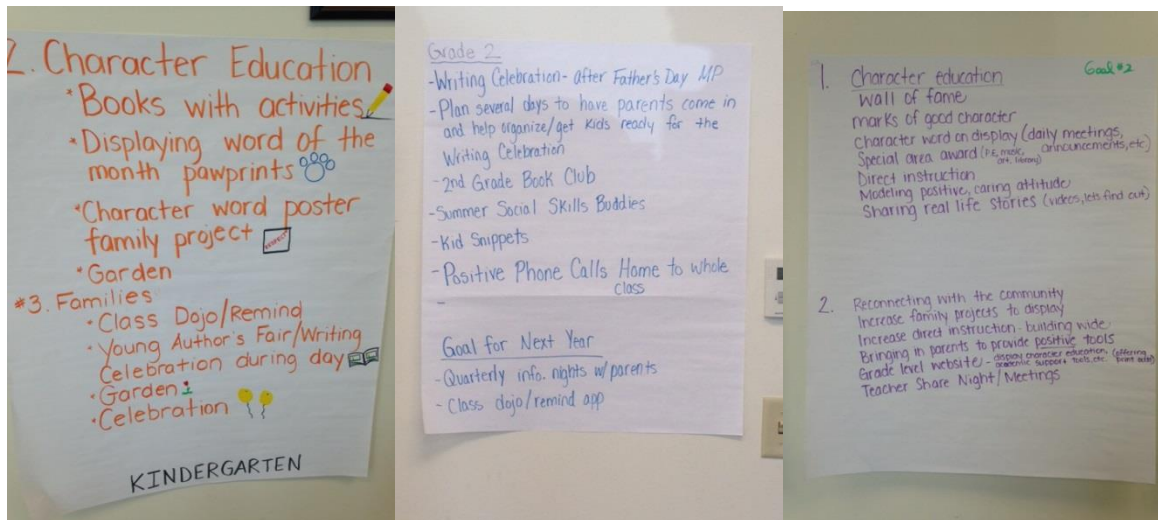 2. Character Education
* Books with activities
* Displaying word of the
month pawprints
* Character word poster
family project
* Garden
#3. Families
• Class Dojo/Remind
• Young Author's Fair/Writing
Celebration during day
• Garden
• Celebration
KINDERGARTEN
Grade 2
- Writing Celebration - after Father's Day MP
- Plan several days to have parents come in
and help organize/get kids ready for the
Writing Celebration
- 2nd Grade Book Club
- Summer Social Skills Buddies
- Kid Snippets
- Positive Phone Calls Home to whole
class
-
Goal for Next Year
- Quarterly info. nights w/parents
- Class dojo/remind app
Goal #2
1. Character education
wall of fame
marks of good character
Character word on display (daily meetings,
announcements, etc)
Special area award (P.E, music,
art, library)
Direct instruction
Modeling positive, caring attitude
Sharing real life stories (videos, lets find out)
2. Reconnecting with the community
Increase family projects to display
Increase direct instruction - building wide
Bringing in parents to provide positive tools
Grade level website - display character education, (offering
academic support tools, etc.
Teacher Share Night/Meetings